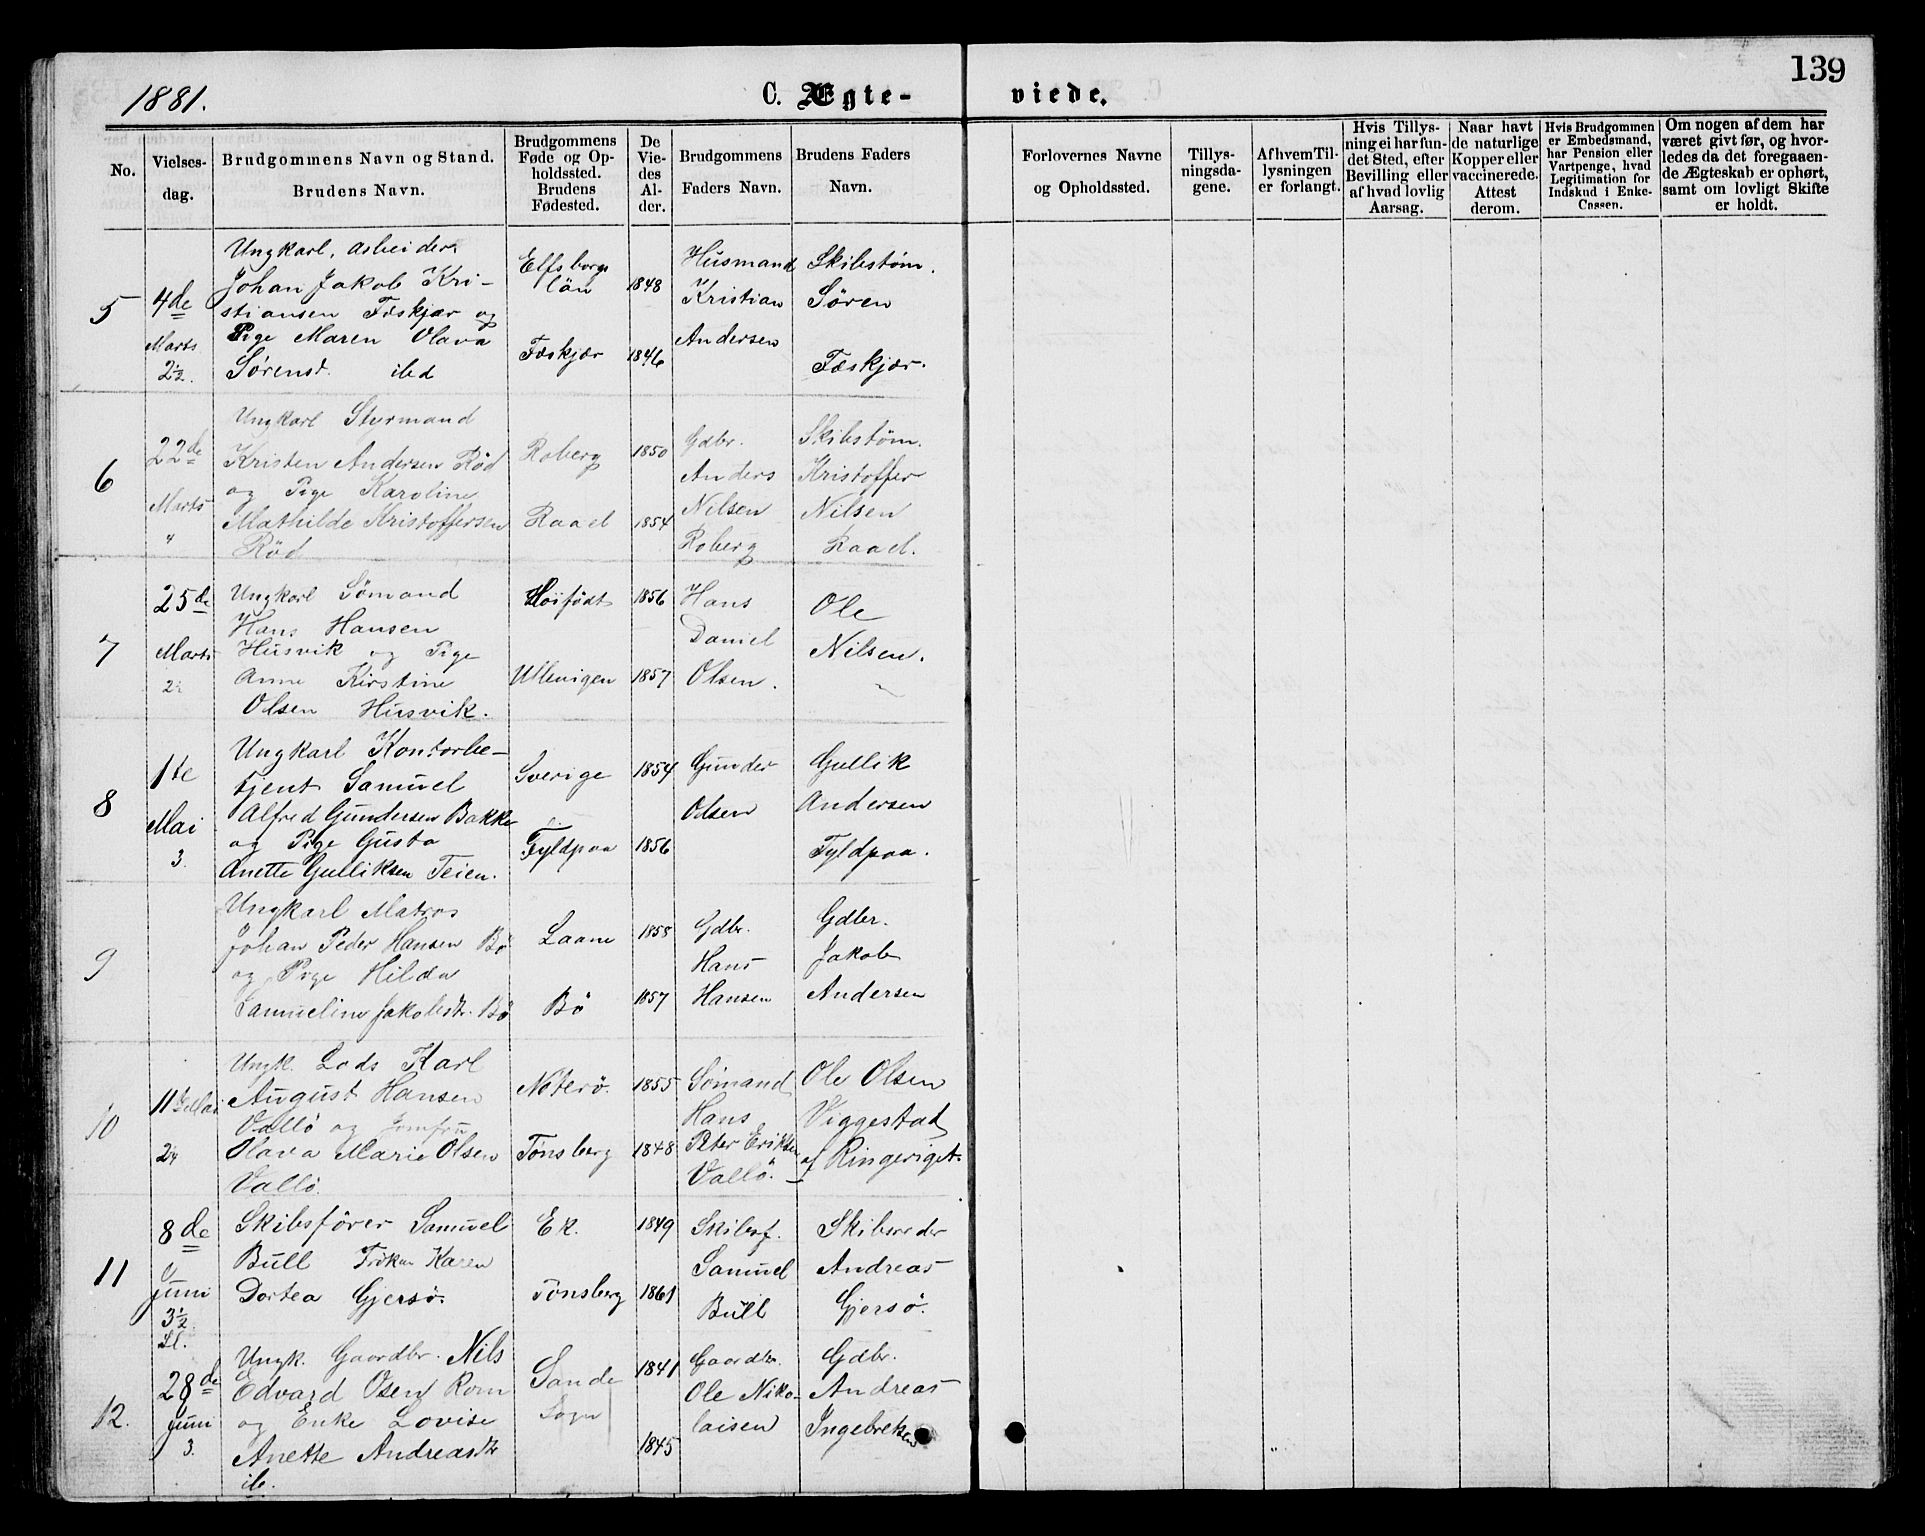 139
1881.
C. Ægte-
viede.
No.
Vielses-
dag.
Brudgommens Navn og Stand.
Brudens Navn.
Brudgommens
Føde og Op-
holdssted.
Brudens
Fødested.
De
Vie-
des
Al-
der.
Brudgommens
Faders Navn.
Brudens Faders
Navn.
Forlovernes Navne
og Opholdssted.
Tillys-
ningsda-
gene.
Af hvem Til-
lysningen
er forlangt.
Hvis Tillys-
ning ei har fun-
det Sted, efter
Bevilling eller
af hvad lovlig
Aarsag.
Naar havt
de naturlige
Kopper eller
vaccinerede.
Attest
derom.
Hvis Brudgommen
er Embedsmand,
har Pension eller
Vartpenge, hvad
Legitimation for
Indskud i Enke-
Cassen.
Om nogen af dem har
været givt før, og hvor-
ledes da det foregaaen-
de Ægteskab er ophørt,
samt om lovligt Skifte
er holdt.
5
4de
Marts
2½.
Ungkarl, Arbeider
Johan Jakob Kri-
stiansen Fæskjær og
Pige Maren Olava
Sørensd. ibd
Elfsborgs
län
Fæskjær
1848
1846
Husmand
Kristian
Andersen
Skibstøm.
Søren
Fæskjær.
6
22de
Marts
"
Ungkarl Styrmand
Kristen Andersen Röd
og Pige Karoline
Mathilde Kristoffersen
Röd
Roberg
Raael
1850
1854
Gdbr.
Anders
Nilsen
Roberg
Skibstøm.
Kristoffer
Nilsen
Raael.
7
25de
Marts
Ungkarl Sömand
Hans Hansen
Husvik og Pige
Anne Kirstine
Olsen Husvik.
Höifödt
Ullevigen
1856
1857
Hans
Daniel
Olsen.
Ole
Nilsen.
8
1te
Mai
3.
Ungkarl Kontorbe-
tjent Samuel
Alfred Gundersen Bakke
og Pige Gusta
Anette Gulliksen Teien.
Sverige
Fyldpaa
1854
1856
Gunder
Olsen
Gullik
Andersen
Fyldpaa.
9
Ungkarl Matros
Johan Peder Hansen Bö
og Pige Hilda
Samueline Jakobsdr. Bö
Laane
Bö
1858
1857
Gdbr.
Hans
Hansen
Gdbr.
Jakob
Andersen
10
11te Mai
Ungk. Lods Karl
August Hansen
Vallö og Jomfru
Olava Marie Olsen
Vallö.
Noterö.
Tønsberg
1855
1848
Sømand
Hans
Peter Eriksen
Vallö.
Ole Olsen
Viggestad
af Ringeriget.
11
8de
Juni
3½
Kl.
Skibsfører Samuel
Bull Frøken Karen
Dortea Gjersö.
Ek.
Tønsberg
1849
1861
Skibsf.
Samuel
Bull
Skibsreder
Andreas
Gjersö.
12.
28de
Juni
3.
Ungk. Gaardbr. Nils
Edvard Osen Rom
og Enke Lovise
Anette Andreasdr
ib.
Sande
Sogn
1841
1845
Gaardbr.
Ole Niko-
laisen
Gdbr.
Andreas
Ingebretsen